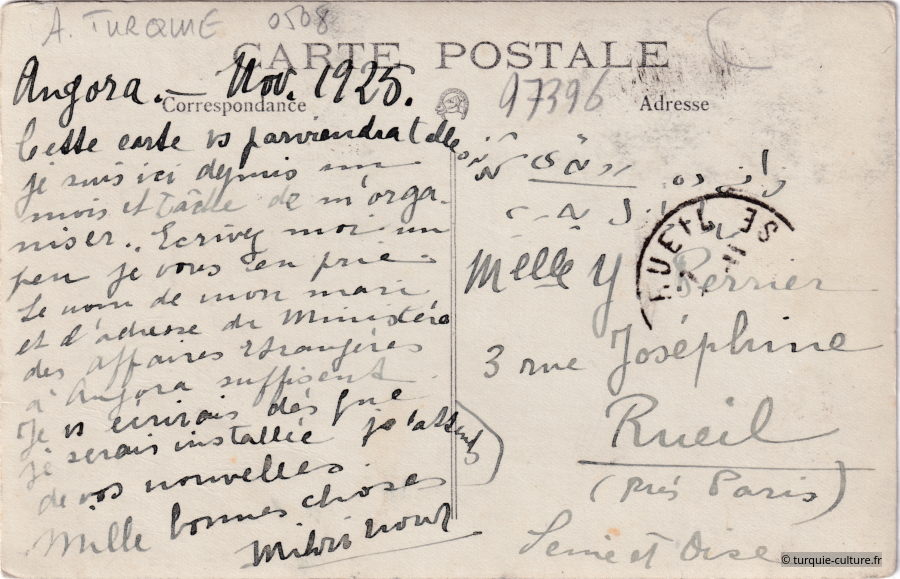 A. TURQUIE 0508
CARTE POSTALE
Angora. — Nov. 1925.
Correspondance
97396
Adresse
Cette carte vs parviendra t elle
je suis ici depuis un
mois et tâche de m'orga-
niser.. Ecrivez moi un
peu je vous en prie
Le nom de mon mari
et l'adresse du Ministère
des Affaires Etrangères
à Angora suffisent.
Je vs écrirais dès que
je serais installée j'attends
de vos nouvelles
Mille bonnes choses
RUEIL
SE
Melle Y Perrier
3 rue Joséphine
Rueil
(près Paris)
Seine et Oise
© turquie-culture.fr